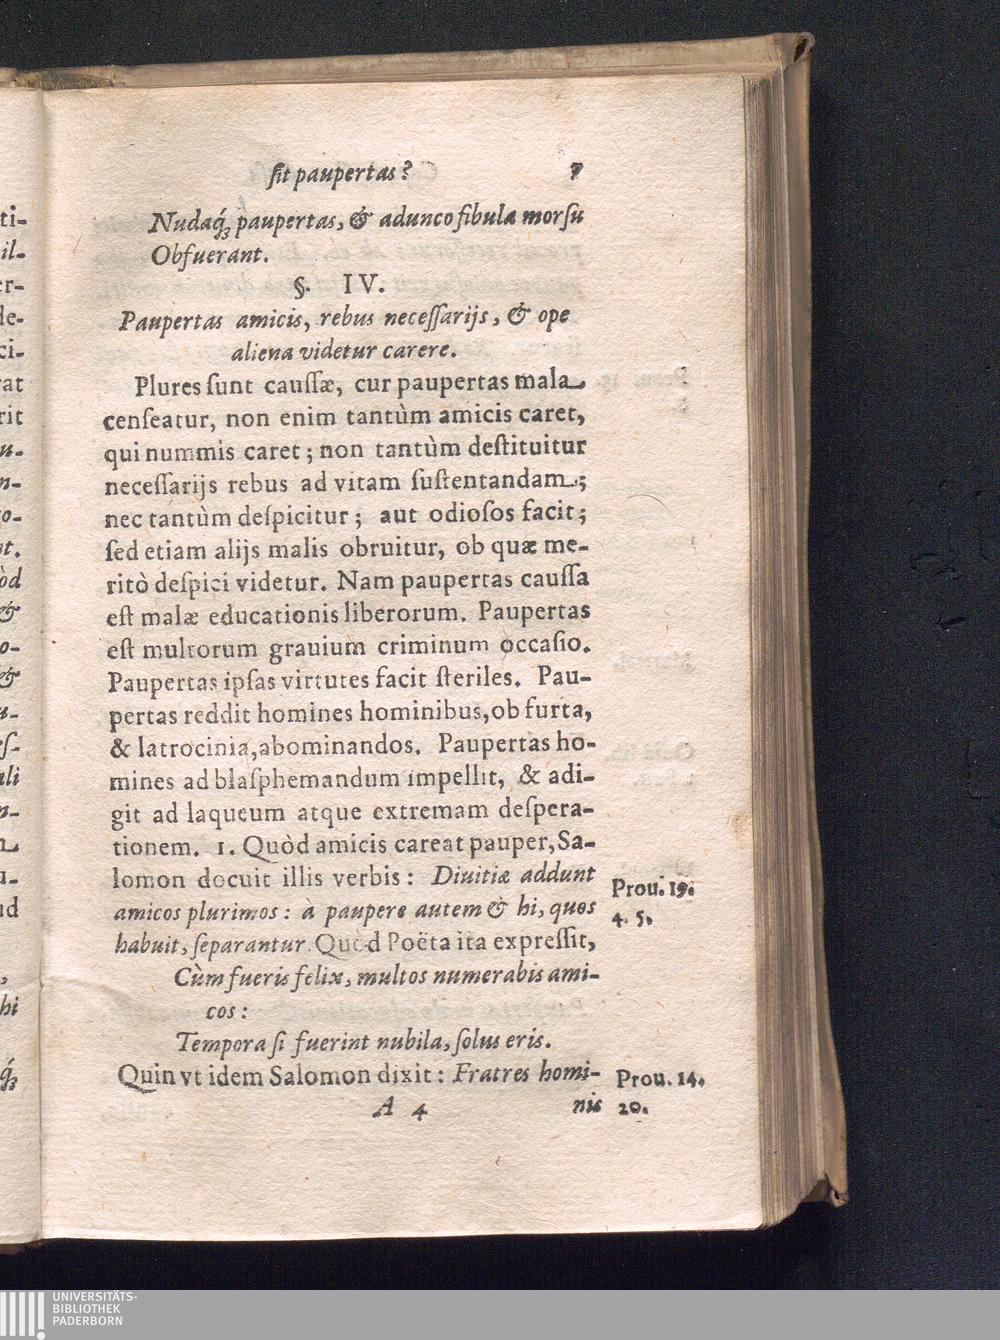 sit paupertas? 7
Nudaq́; paupertas, & adunco fibula morsu
Obfuerant.
§. IV.
Paupertas amicis, rebus necessarijs, & ope
aliena videtur carere.
Plures sunt caussæ, cur paupertas mala
censeatur, non enim tantùm amicis caret,
qui nummis caret; non tantùm destituitur
necessarijs rebus ad vitam sustentandam;
nec tantùm despicitur; aut odiosos facit;
sed etiam alijs malis obruitur, ob quæ me-
ritò despici videtur. Nam paupertas caussa
est malæ educationis liberorum. Paupertas
est multorum grauium criminum occasio.
Paupertas ipsas virtutes facit steriles. Pau-
pertas reddit homines hominibus, ob furta,
& latrocinia, abominandos. Paupertas ho-
mines ad blasphemandum impellit, & adi-
git ad laqueum atque extremam despera-
tionem. 1. Quòd amicis careat pauper, Sa-
lomon docuit illis verbis: Diuitiæ addunt
amicos plurimos: à paupere autem & hi, quos
habuit, separantur. Quòd Poëta ita expressit,
Cùm fueris felix, multos numerabis ami-
cos:
Tempora si fuerint nubila, solus eris.
Quin vt idem Salomon dixit: Fratres homi-
A 4 nis
Prou. 19.
4. 5.
Prou. 14.
20.
ti-
il-
er-
de-
ci-
rat
rit
u-
n-
o-
nt.
òd
&
o-
&
u-
es-
ali
n-
u-
ud
,
hi
q́;
UNIVERSITÄTS-
BIBLIOTHEK
PADERBORN